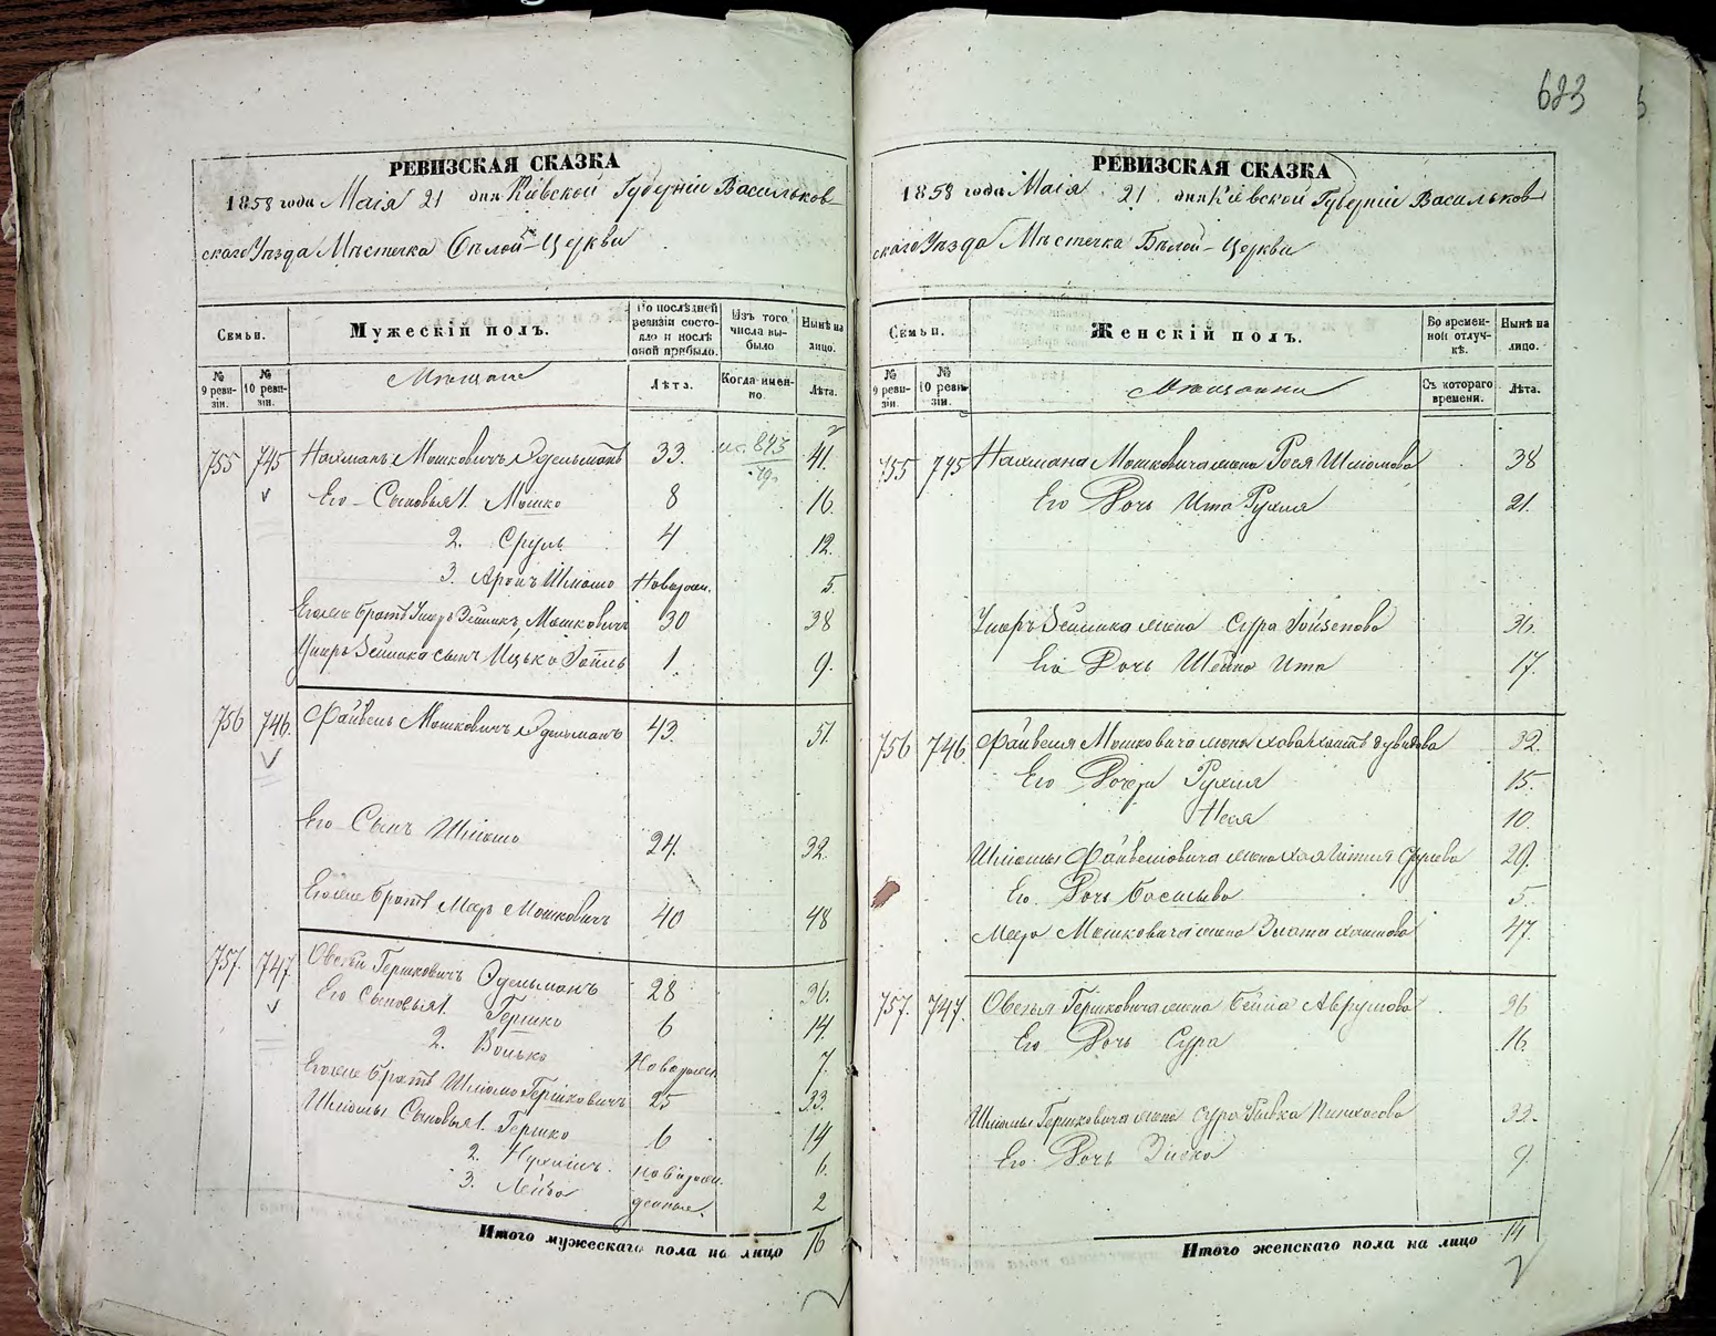 683
РЕВИЗСКАЯ СКАЗКА
1858 года Маія 21 дня Кіевской Губерніи Васильков-
скаго Уѣзда Мѣстечка Бѣлой-Церкви
Семьи.
Мужескій полъ.
По послѣдней ревизіи состояло и послѣ оной прибыло.
Изъ того числа выбыло
Нынѣ на лицо.
№ 9 ревизіи.
№ 10 ревизіи.
Мѣщане
Лѣта.
Когда именно.
Лѣта.
755 745 Нахманъ Мошковичъ Эдельманъ 33. 41.
Его Сыновья 1. Мошко 8 16.
2. Сруль 4 12.
3. Аронъ Шліомо Новорож. 5.
Его же братъ Ушеръ Зейликъ Мошковичъ 30 38
Ушера Зейлика сынъ Ицько 1. 9.
756 746. Файвель Мошковичъ Эдельманъ 43. 51.
Его Сынъ Шліомо 24. 32.
Его же братъ Меер Мошковичъ 40 48
757. 747. Овсей Гершковичъ Эдельманъ 28 36.
Его сыновья 1. Гершко 6 14.
2. Волько Новорож. 7.
Его же братъ Шліомо Гершковичъ 25 33.
Шліомы Сыновья 1. Гершко 6 14
2. Нухимъ новорож. 6.
3. Лейба денные. 2
Итого мужескаго пола на лицо 16
РЕВИЗСКАЯ СКАЗКА
1858 года Маія 21 дня Кіевской Губерніи Васильков-
скаго Уѣзда Мѣстечка Бѣлой-Церкви
Семьи.
Женскій полъ.
Во временной отлучкѣ.
Нынѣ на лицо.
№ 9 ревизіи.
№ 10 ревизіи.
Мѣщанки
Съ котораго времени.
Лѣта.
755 745 Нахмана Мошковича жена Рося Шліомова 38
Его Дочь Ита Рухля 21.
Ушера Зейлика жена Сура 36.
Его Дочь Шейна Ита 17.
756 746 Файвеля Мошковича жена Дувидова 32.
Его Дочери Рухля 15.
Неся 10.
Шліомы Файвеліовича жена Срулева 29.
Его Дочь Басшева 5.
Меера Мошковича жена Злата Хаимова 47.
757. 747. Овсея Гершковича жена Бейла Аврумова 36
Его Дочь Сура 16.
Шліомы Гершковича жена Сура Ривка Пинхасова 33.
Его Дочь 9.
Итого женскаго пола на лицо 14